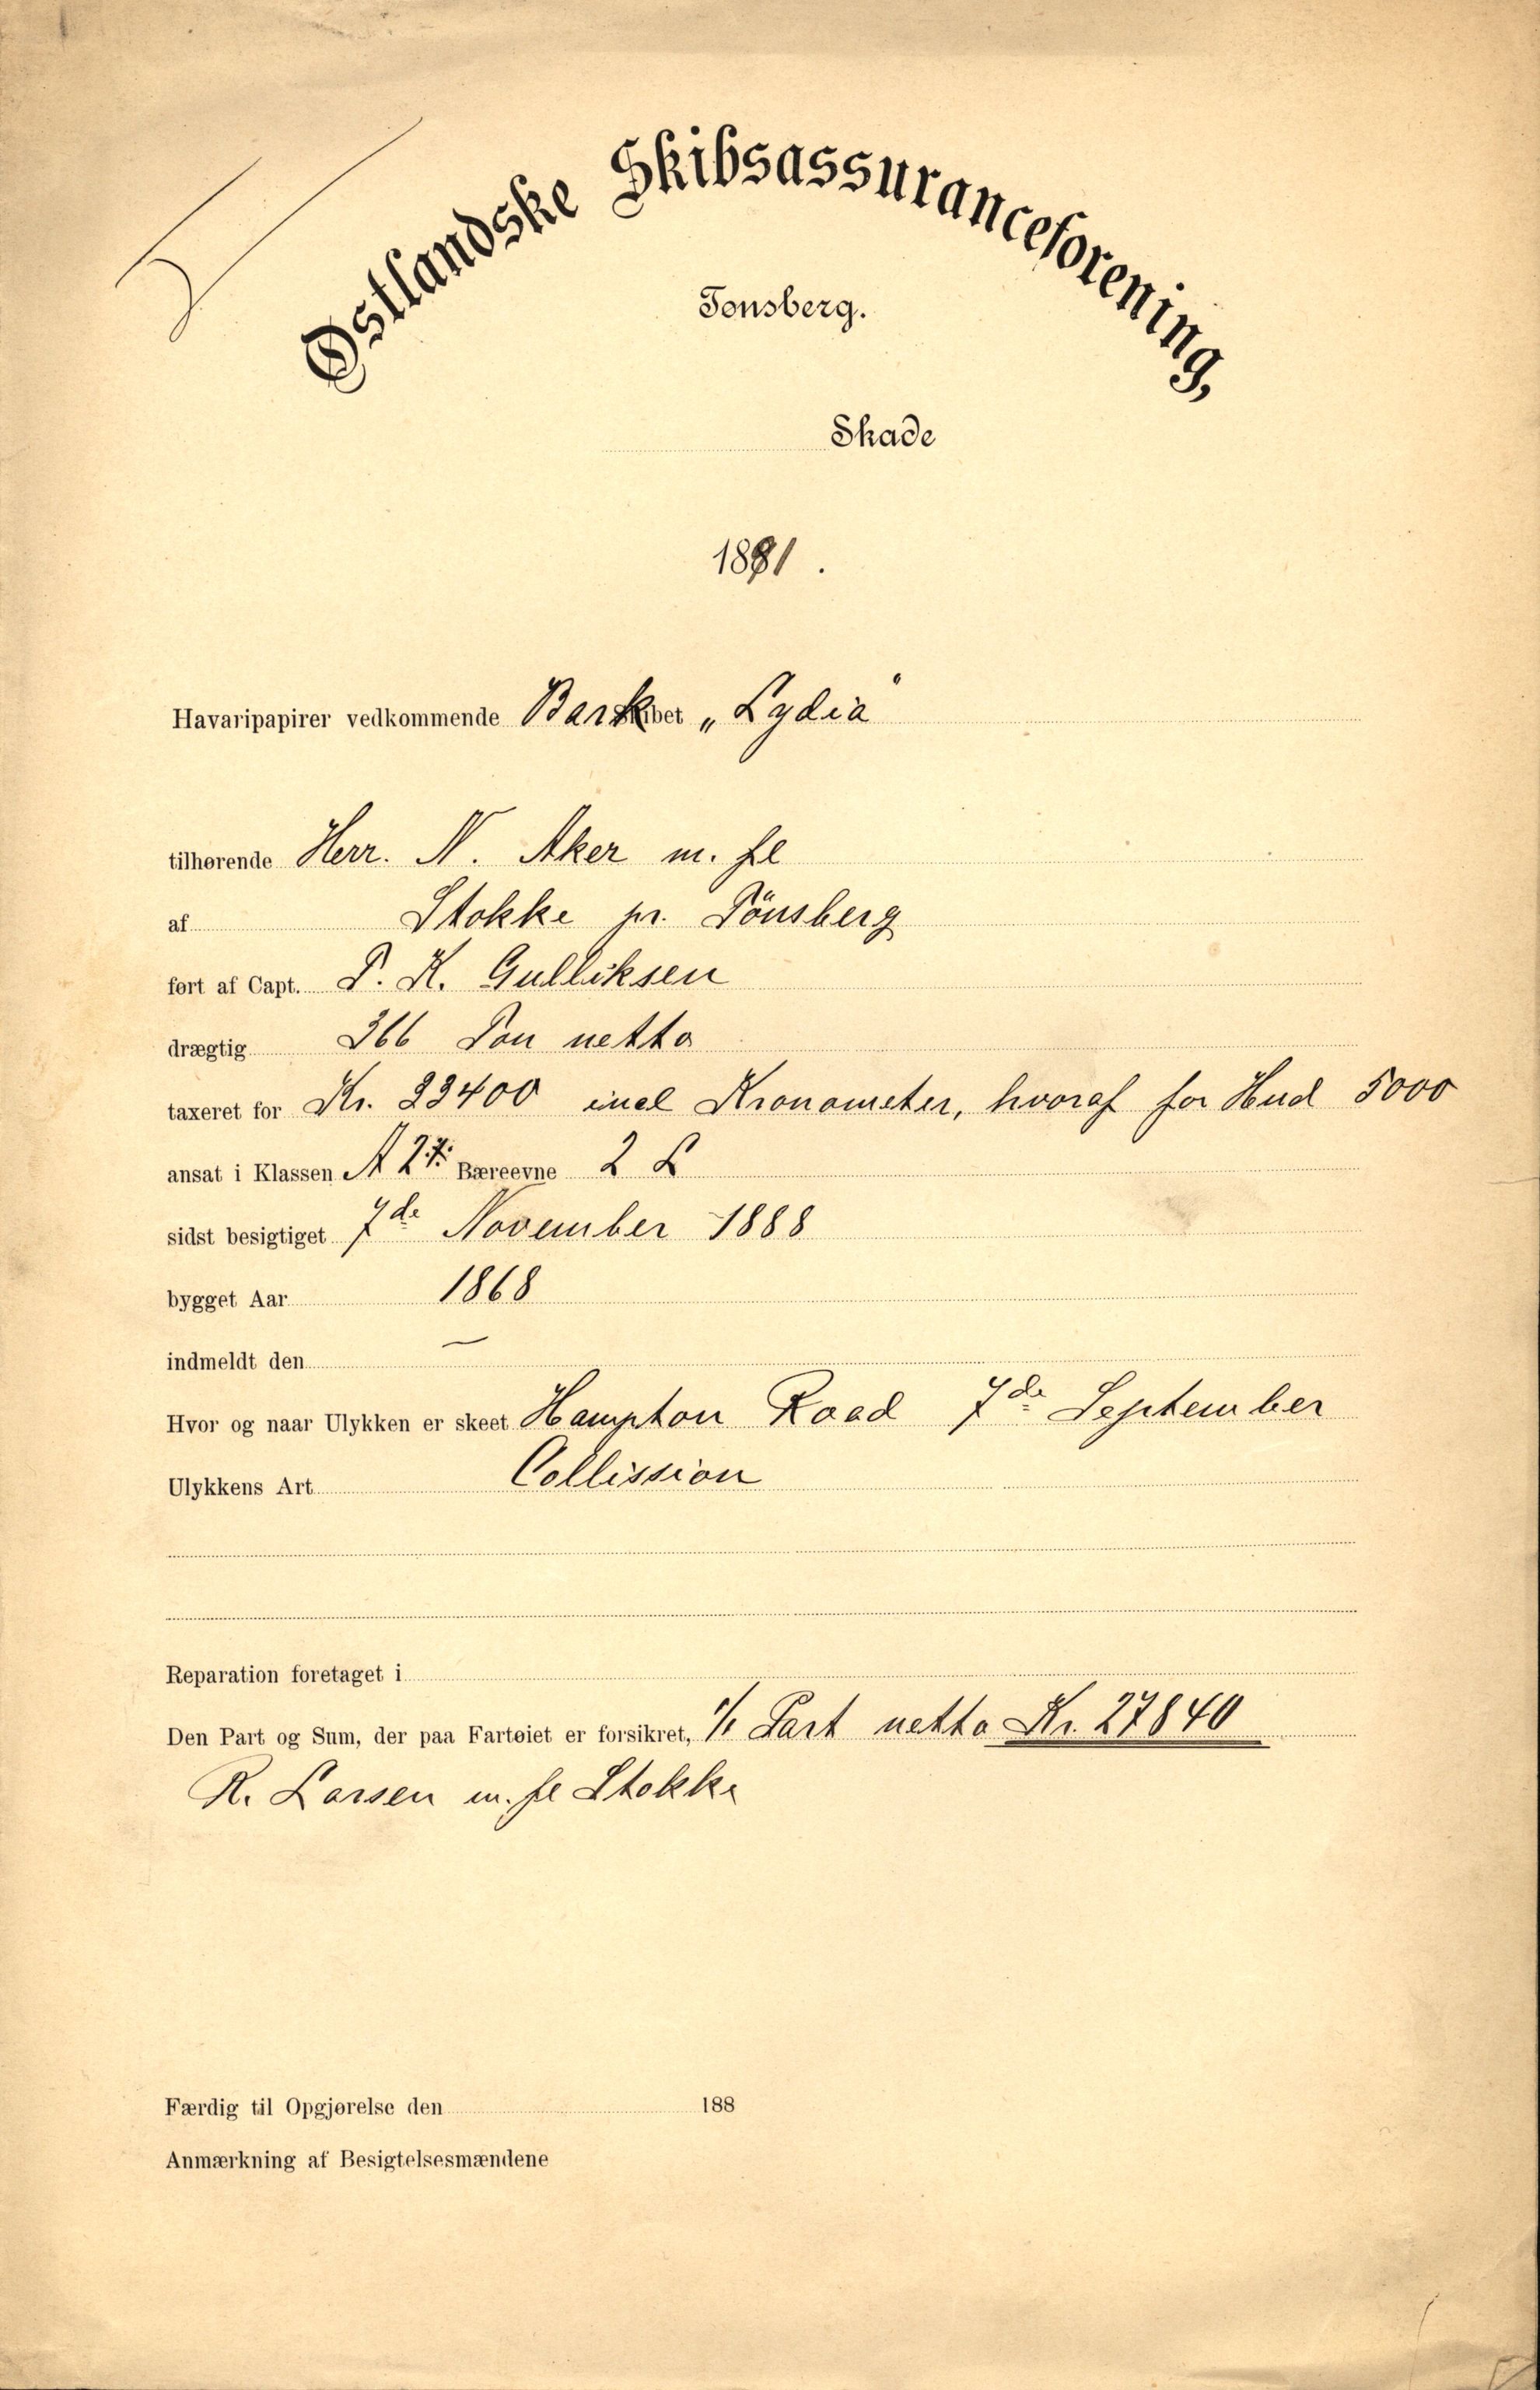 Østlandske Skibsassuranceforening,
Tønsberg.
Skade
1891.
Havaripapirer vedkommende Barkskibet „Lydia"
tilhørende Herr. N. Aker m. fl
af Stokke pr. Tönsberg
ført af Capt. P. K. Gulliksen
drægtig 366 Ton netto
taxeret for Kr. 23400 incl Kronometer, hvoraf for Hud 5000
ansat i Klassen A 2 Bæreevne 2 L
sidst besigtiget 7de November 1888
bygget Aar 1868
indmeldt den —
Hvor og naar Ulykken er skeet Hampton Road 7de September
Ulykkens Art Collission
Reparation foretaget i
Den Part og Sum, der paa Fartøiet er forsikret, 1/1 Part netto Kr. 27840
R. Larsen m. fl Stokke
Færdig til Opgjørelse den 188
Anmærkning af Besigtelsesmændene